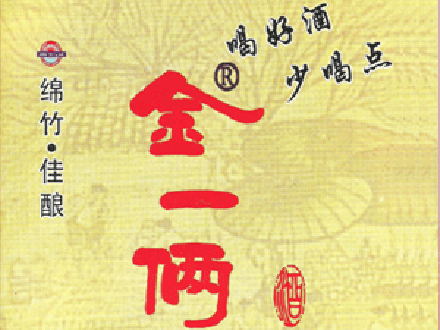 喝好酒
少喝点
®
金一俩
绵竹·佳酿
酒